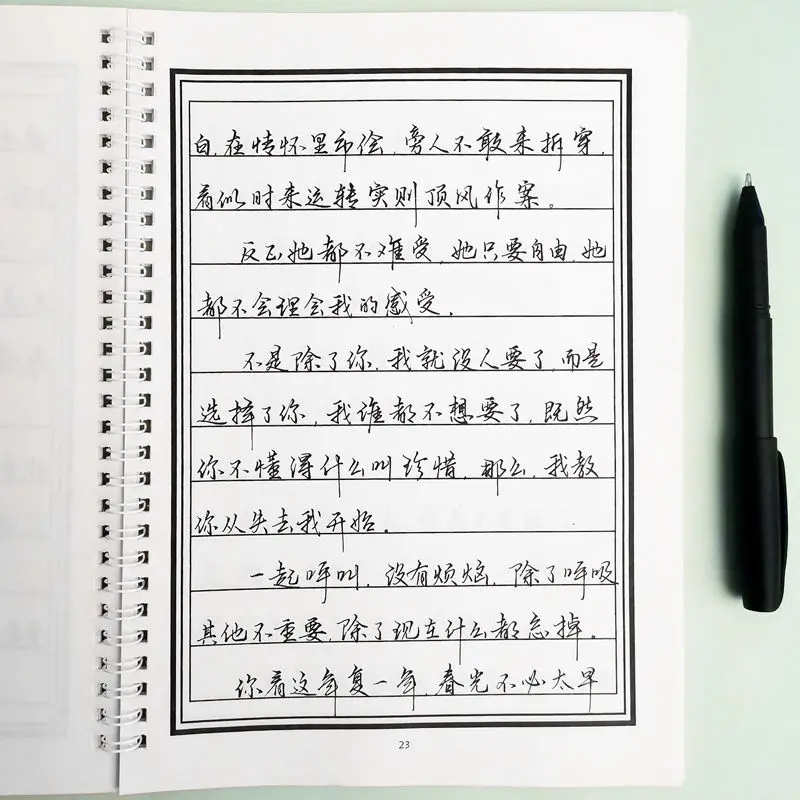 白,在情怀里布绘,旁人不敢来拆穿,
看似时来运转实则顶风作案。
反正她都不难受,她只要自由,她
都不会理会我的感受。
不是除了你,我就没人要了,而是
选择了你,我谁都不想要了,既然
你不懂得什么叫珍惜,那么,我教
你从失去我开始。
一起呼叫,没有烦恼,除了呼吸
其他不重要,除了现在什么都忘掉。
你看这年复一年,春光不必太早
23